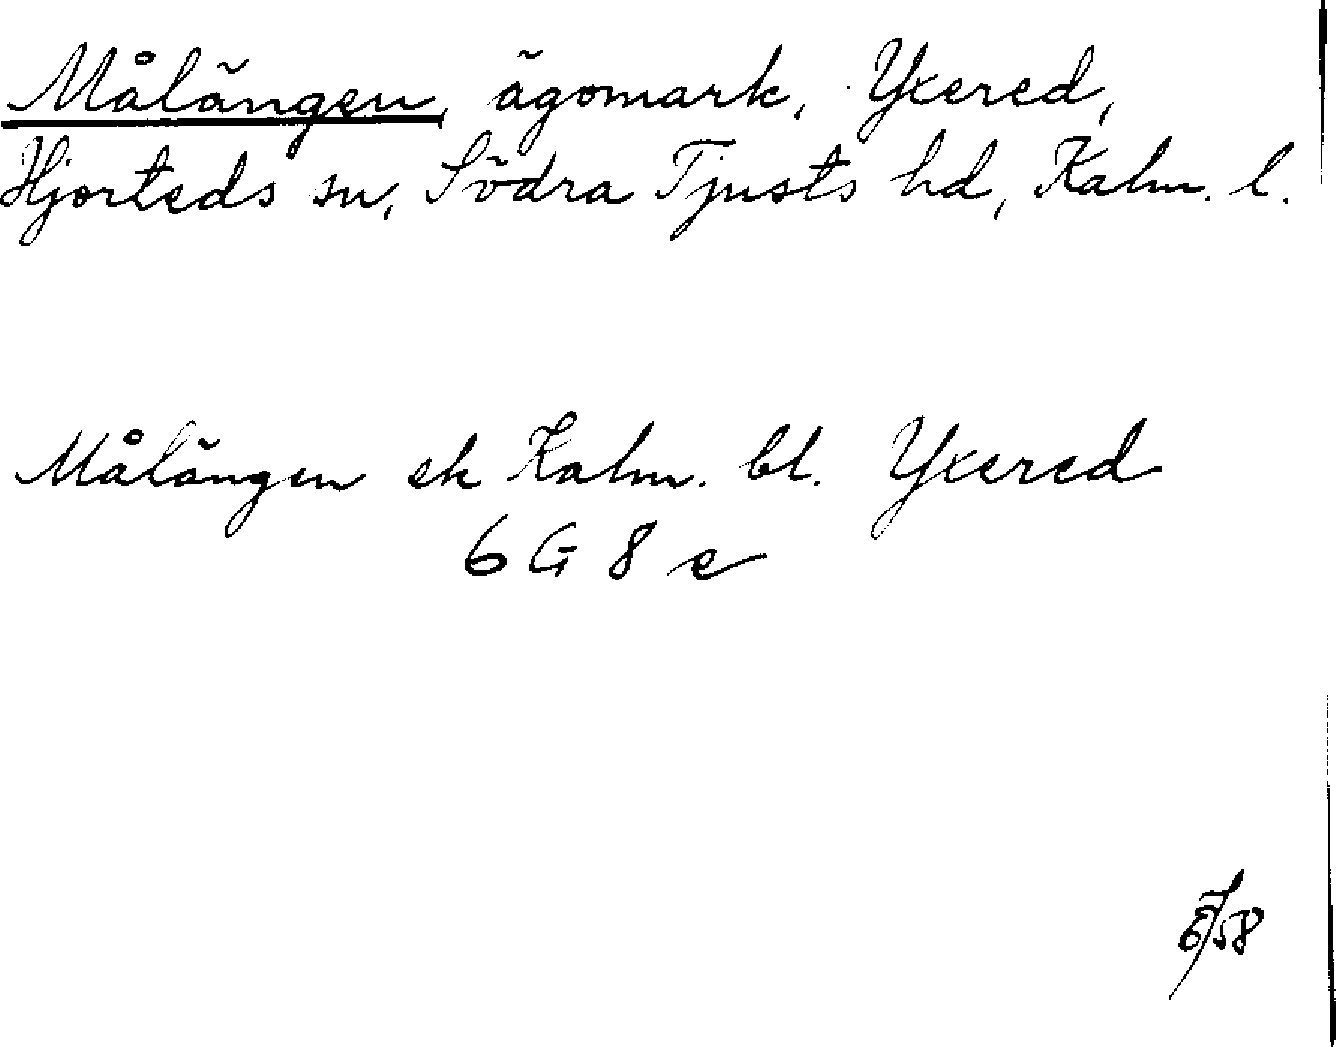 Målängen, ägomark, Yxered,
Hjorteds sn, Södra Tjusts hd, Kalm. l.
Målängen ek Kalm. bl. Yxered
6 G 8 e